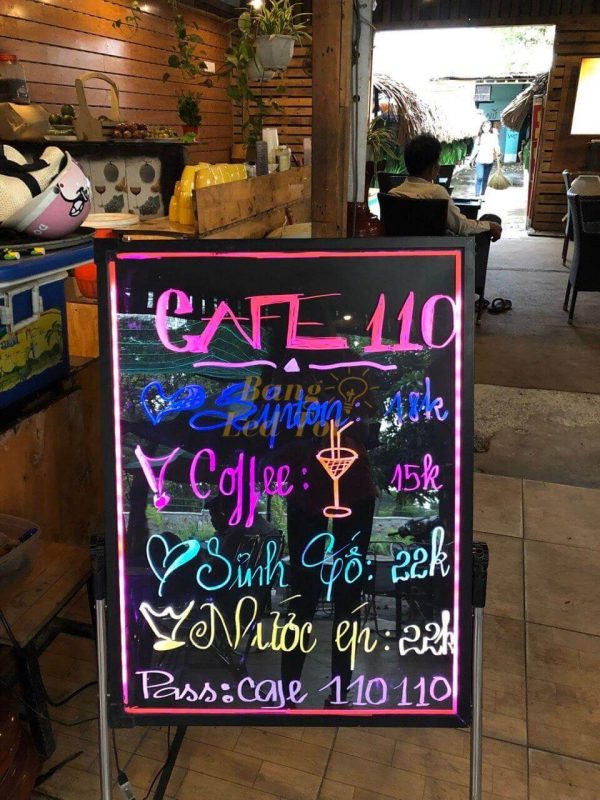 CAFE 110
Lipton: 18k
Coffee: 15k
Sinh Tố: 22k
Nước ép: 22k
Pass: cafe 110110
Bang
Led